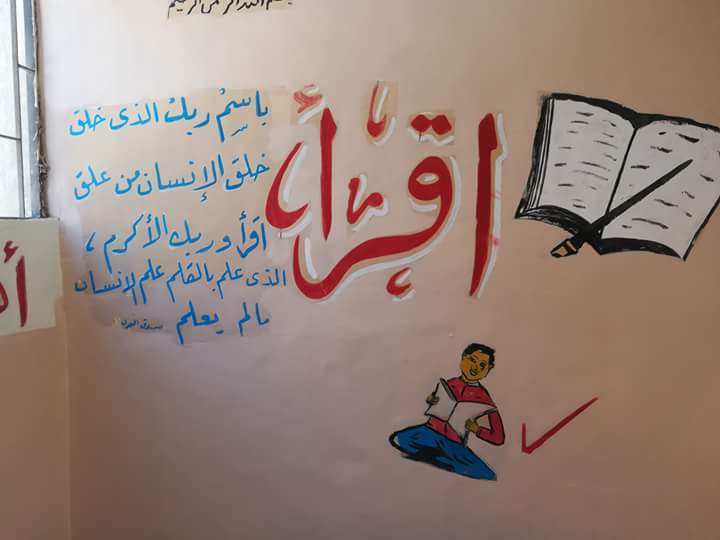 بسم الله الرحمن الرحيم
اقرأ
باسمِ ربك الذى خلق
خلق الإنسان من علق
اقرأ وربك الأكرم ،
الذى علم بالقلم علم الإنسان
مالم يعلم